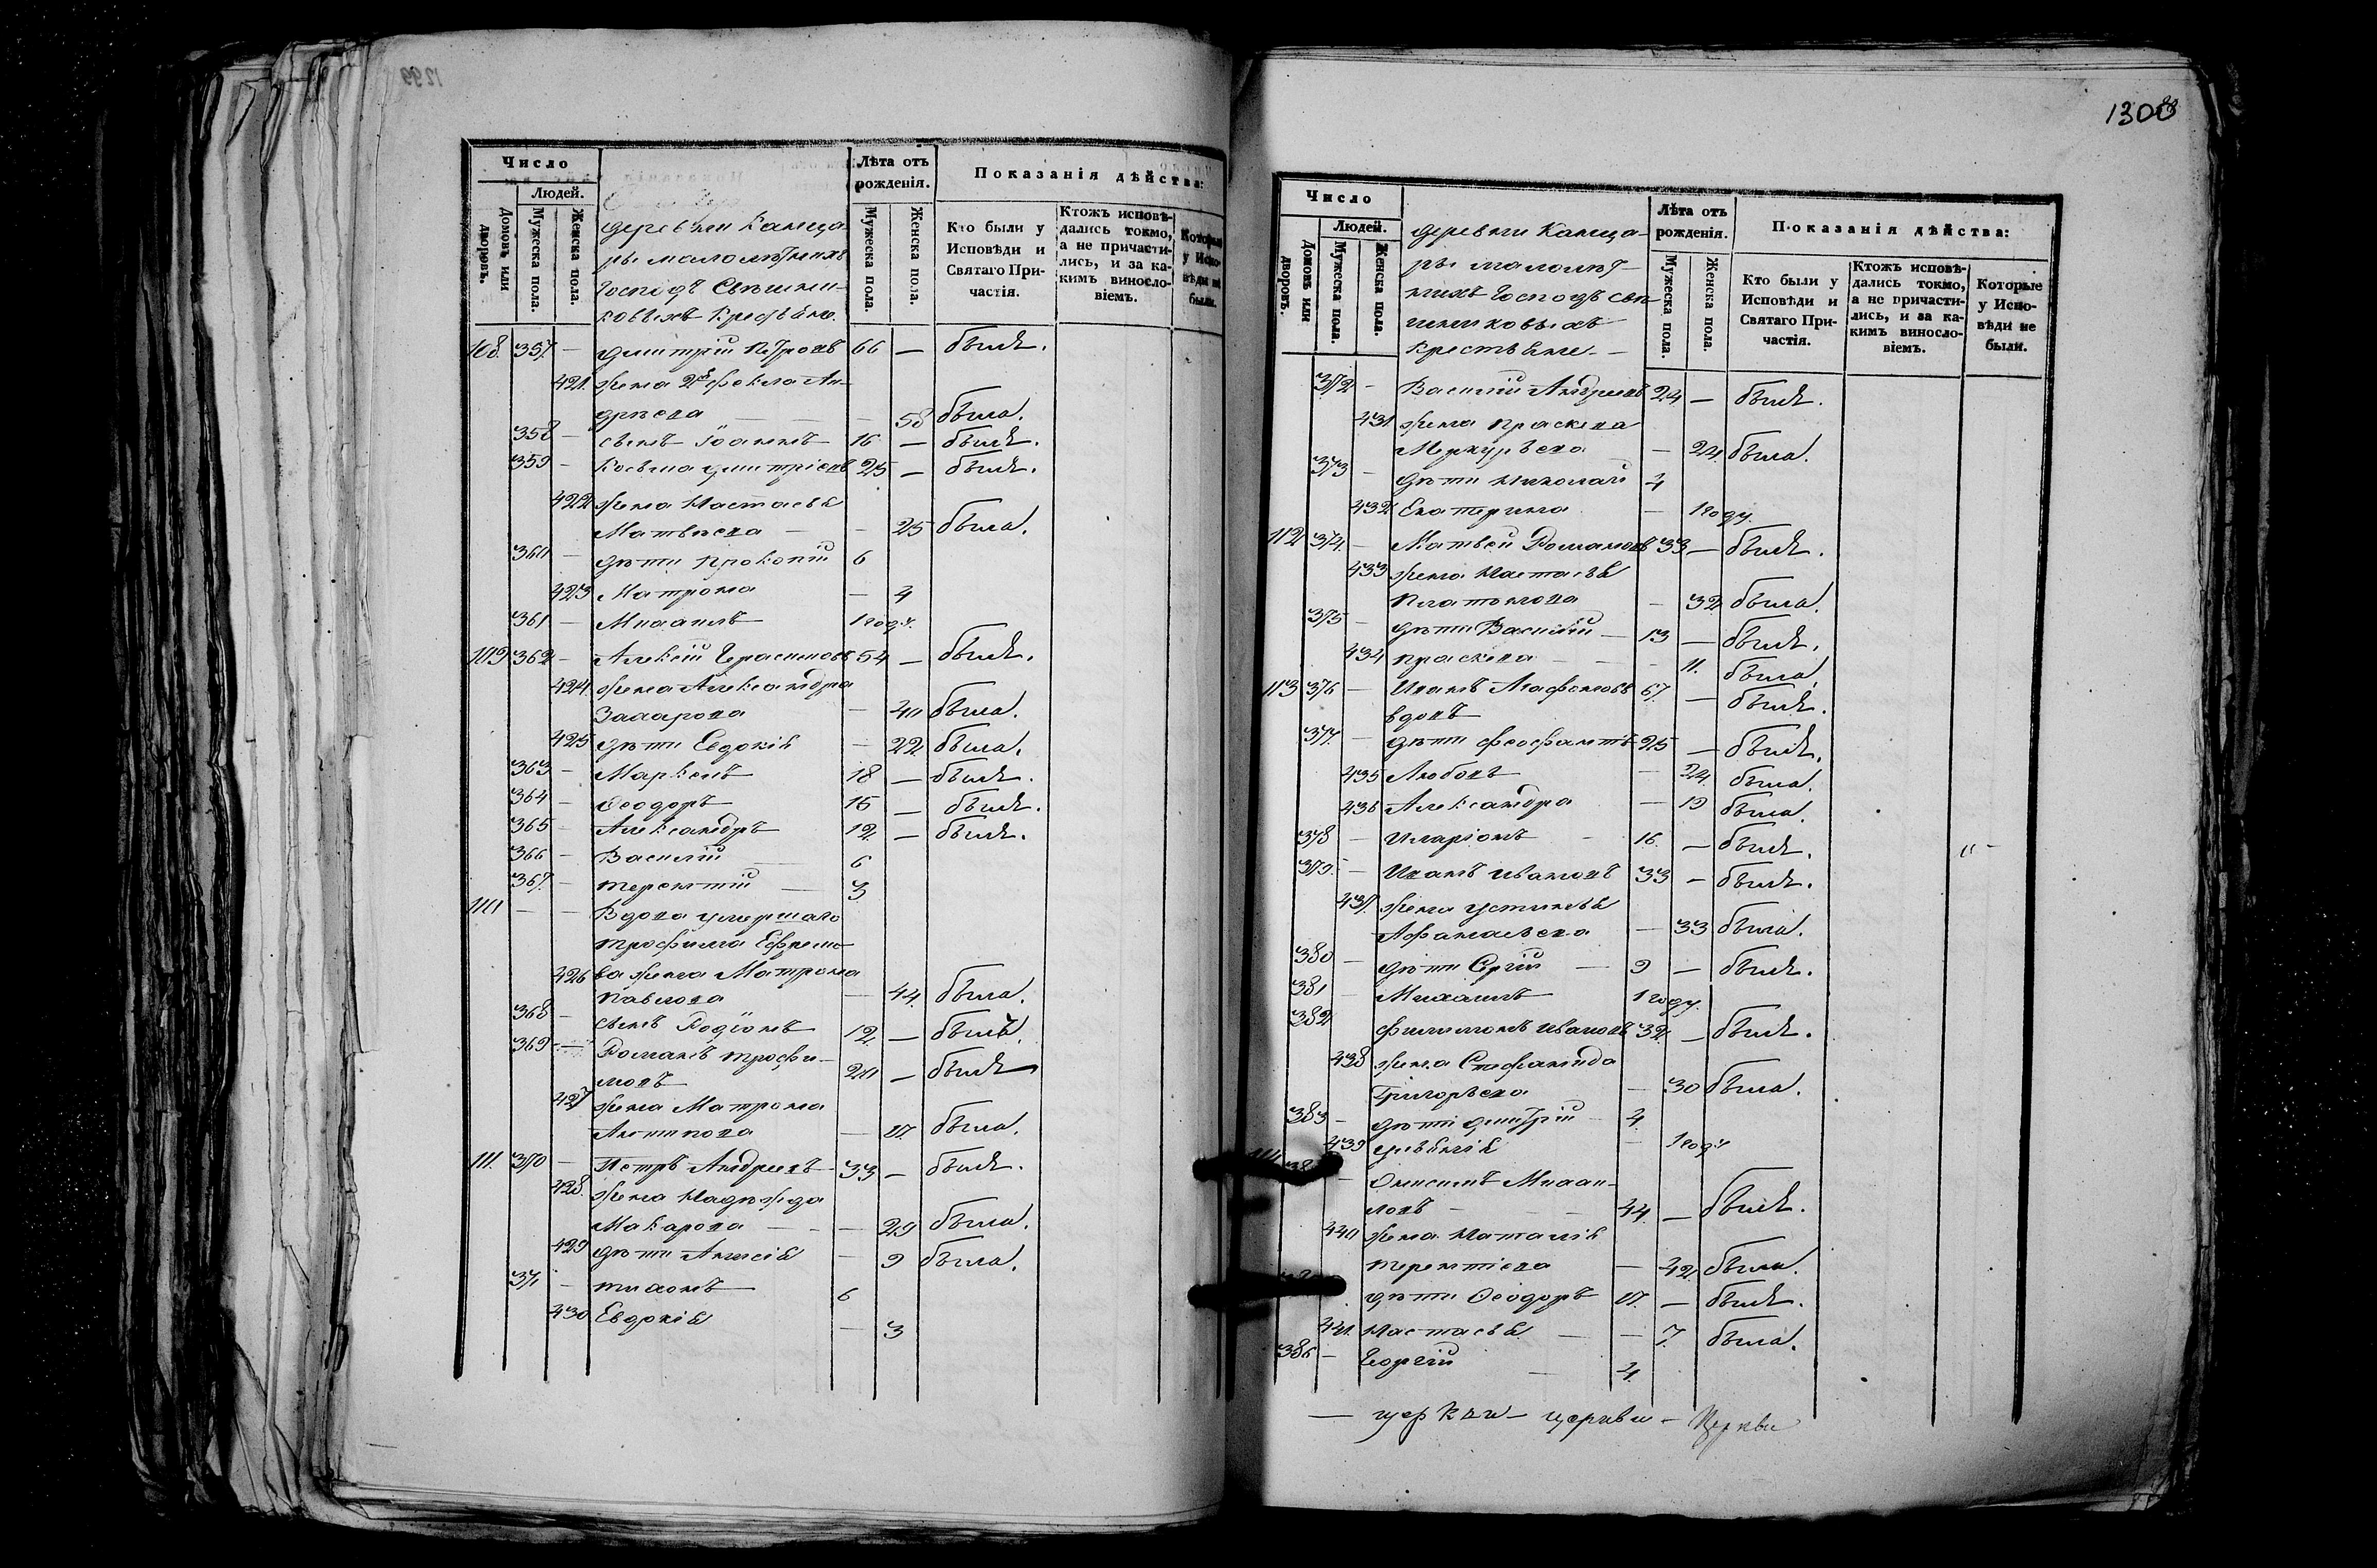 1299
Число
Людей.
Домовъ или дворовъ.
Мужеска пола.
Женска пола.
деревни Канца-
ры малолѣтнихъ
Господъ Свѣшни-
ковыхъ крестьяне.
Лѣта отъ рожденія.
Мужеска пола.
Женска пола.
Показанія дѣйства:
Кто были у Исповѣди и Святаго При-частія.
Ктожъ исповѣ-дались токмо, а не причасти-лись, и за ка-кимъ винosло-віемъ.
Которые у Испо-вѣди не были.
108. 357. — Димитрій Петровъ 66 — былъ.
421. жена 2я Фекла Ан-
дрѣева — — 58 была.
358 — сынъ Іоаннъ 16 — былъ.
359 — Косьма Димитріевъ 25 — былъ.
422 жена Настасья
Матвѣева — — 25 была.
360 — дѣти Прокопій 6
423 Матрона — 4
361 — Михаилъ 1 году.
109 362 — Алексій Герасимовъ 54 — былъ.
424. жена Александра
Захарова — 40 была.
425 дѣти Евдокія — 22 была.
363 — Маркелъ 18 — былъ.
364 — Ѳеодоръ 15 — былъ.
365 — Александръ 12 — былъ.
366 — Василій — 6
367. — Терентій — 3
110 — — Вдова умершаго
Трофима Ефремо-
426 ва жена Матрона
Павлова — 44. была.
368 — сынъ Родіонъ 12 — былъ.
369 — Романъ Трофи-
мовъ 20 — былъ
427 жена Матрона
Антипова — 17. была.
111. 370 — Петръ Андреевъ 33 — былъ.
428. жена Надѣжда
Макарова — — — 29 была.
429 дѣти Анисія — 9 была.
371 — Тихонъ 6
430 Евдокія — 3
1300
Число
Людей.
Домовъ или дворовъ.
Мужеска пола.
Женска пола.
деревни Канца-
ры малолѣт-
нихъ Господъ Свѣ-
шниковыхъ
крестьяне —
Лѣта отъ рожденія.
Мужеска пола.
Женска пола.
Показанія дѣйства:
Кто были у Исповѣди и Святаго При-частія.
Ктожъ исповѣ-дались токмо, а не причасти-лись, и за ка-кимъ винoсло-віемъ.
Которые у Испо-вѣди не были.
372 — Василій Андреевъ 24 — былъ.
431 жена Праскева
Меркурьева — 24. была.
373 — дѣти Николай 4
432 Екатерина — 1 году.
112 374. — Матвей Романовъ 33 — былъ.
433 жена Настасья
Платонова — 32 была.
375 — дѣти Василій — 13 — былъ.
434 Праскева — — 11. была.
113 376 — Иванъ Агафоновъ 67. — былъ.
вдовъ
377. — дѣти Феофантъ 25 — былъ.
435 Любовь — 24. была.
436 Александра — 19 была.
378 — Иларіонъ — 16. — былъ.
379. — Иванъ Ивановъ 33 — былъ.
437. жена Устинья
Афанасьева — 33 была.
380 — дѣти Сергій — 9 — былъ.
381 — Михаилъ 1 году.
382 Филимонъ Ивановъ 32. — былъ.
438 жена Стефанида
Григорьева — 30 была.
383 — дѣти Димитрій — 4.
439 Ульянія — 1 году
Онисимъ Михаи-
ловъ — — 44. — былъ.
440 жена Наталія
Терентіева — 42 была.
дѣти Ѳеодоръ 17. — былъ.
441. Настасья — — 7. была.
386 — Георгій — 4.
— церкви — церкви — Церкви